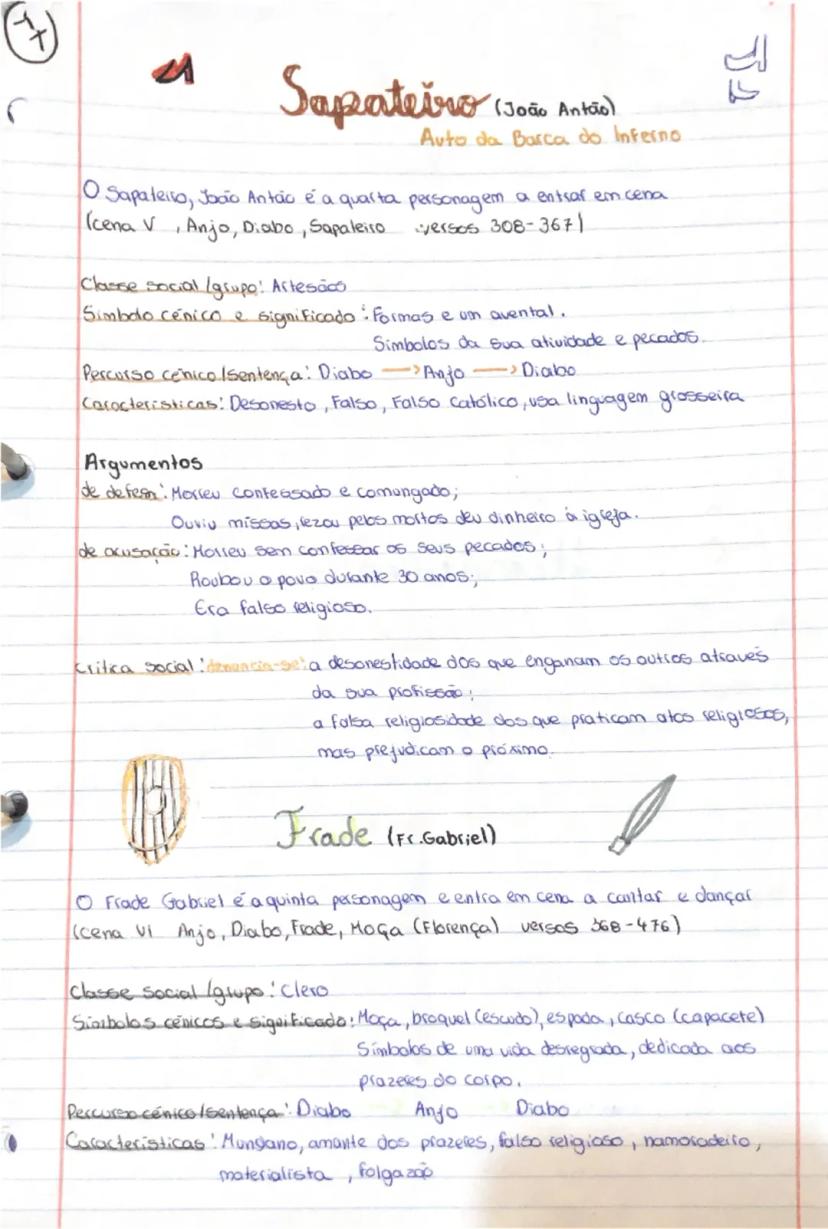 Sapateiro (João Antão)
Auto da Barca do Inferno
O Sapateiro, João Antão é a quarta personagem a entrar em cena
(cena V , Anjo, Diabo, Sapateiro versos 308-367)
Classe social/grupo: Artesãos
Simbolo cénico e significado: Formas e um avental.
Simbolos da sua atividade e pecados.
Percurso cénico/sentença: Diabo → Anjo → Diabo
Características: Desonesto, Falso, Falso Católico, usa linguagem grosseira
Argumentos
de defesa: Morreu confessado e comungado;
Ouviu missas, rezou pelos mortos deu dinheiro à igreja.
de acusação: Morreu sem confessar os seus pecados;
Roubou o povo durante 30 anos;
Era falso religioso.
Crítica social: denuncia-se: a desonestidade dos que enganam os outros através
da sua profissão;
a falsa religiosidade dos que praticam atos religiosos,
mas prejudicam o próximo.
Frade (Fr. Gabriel)
O Frade Gabriel é a quinta personagem e entra em cena a cantar e dançar
(cena VI Anjo, Diabo, Frade, Moça (Florença) versos 368-476)
Classe social/grupo: Clero
Símbolos cénicos e significado: Moça, broquel (escudo), espada, casco (capacete)
Símbolos de uma vida desregrada, dedicada aos
prazeres do corpo.
Percurso cénico/sentença: Diabo Anjo Diabo
Características: Mundano, amante dos prazeres, falso religioso, namoradeiro,
materialista, folgazão